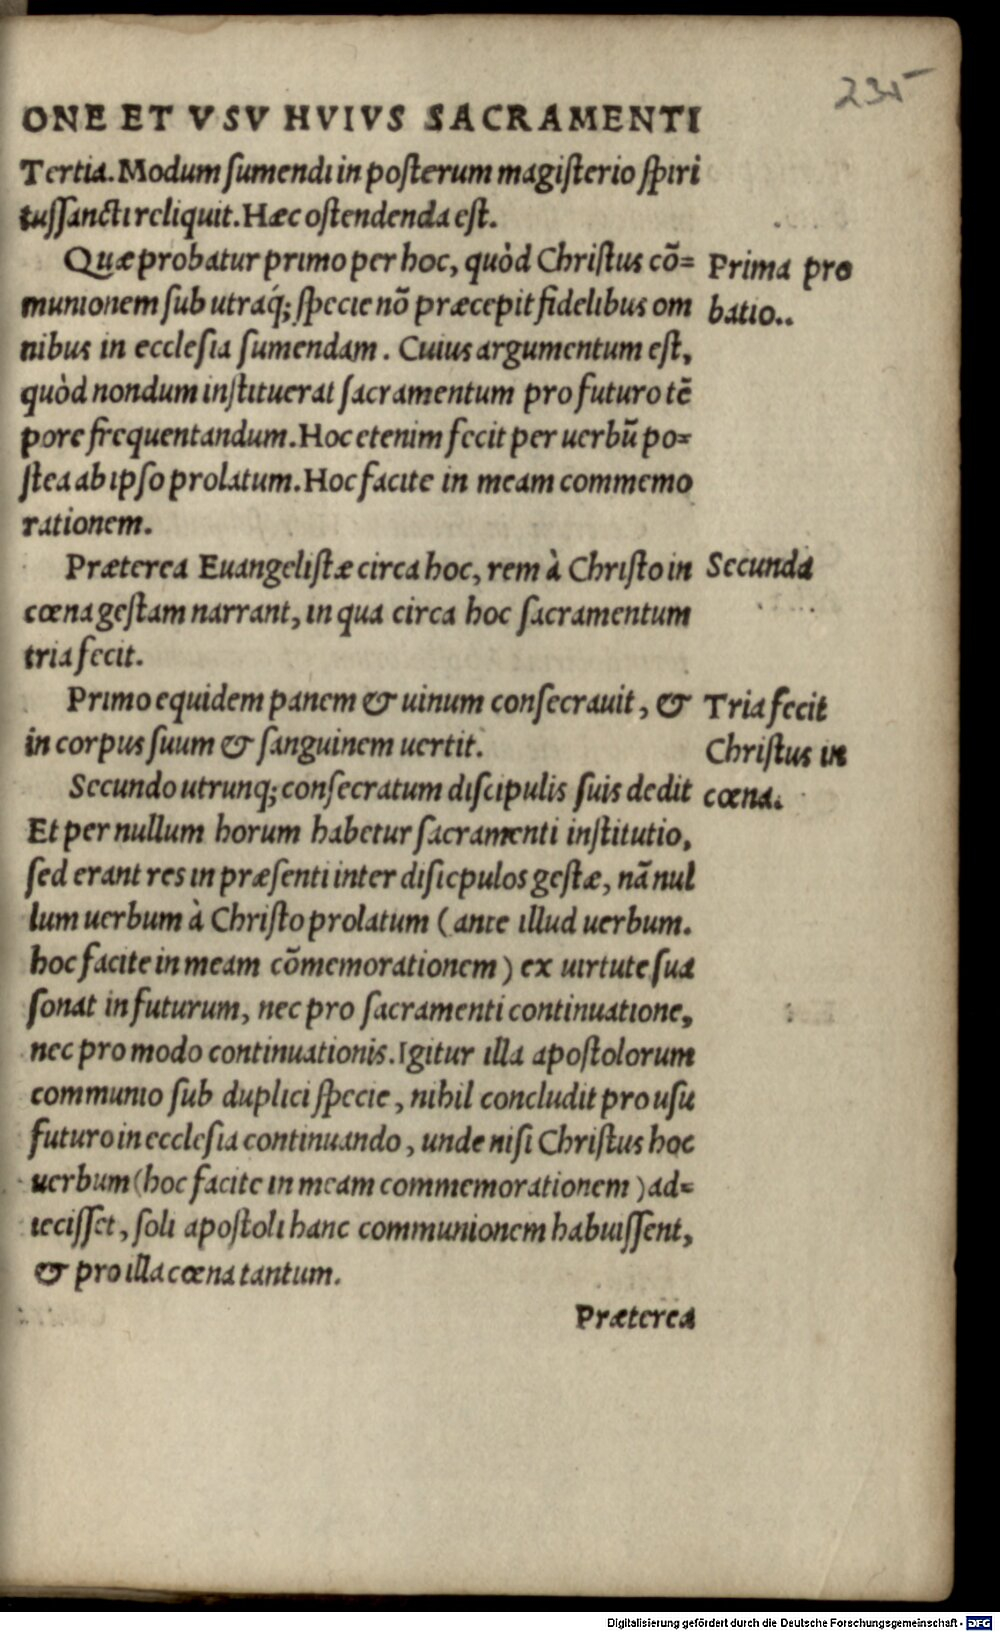 235
ONE ET VSV HVIVS SACRAMENTI
Tertia. Modum ſumendi in poſterum magiſterio ſpiri
tuſſancti reliquit. Hæc oſtendenda eſt.
Quæ probatur primo per hoc, quòd Chriſtus cõ=
munionem ſub utraq́; ſpecie nõ præcepit fidelibus om
nibus in eccleſia ſumendam. Cuius argumentum eſt,
quòd nondum inſtituerat ſacramentum pro futuro tẽ
pore frequentandum. Hoc etenim fecit per uerbũ po=
ſtea ab ipſo prolatum. Hoc facite in meam commemo
rationem.
Prima pro
batio..
Præterea Euangeliſtæ circa hoc, rem à Chriſto in
cœna geſtam narrant, in qua circa hoc ſacramentum
tria fecit.
Secunda
Primo equidem panem & uinum conſecrauit, &
in corpus ſuum & ſanguinem uertit.
Secundo utrunq; conſecratum diſcipulis ſuis dedit
Et per nullum horum habetur ſacramenti inſtitutio,
ſed erant res in præſenti inter diſicpulos geſtæ, nã nul
lum uerbum à Chriſto prolatum (ante illud uerbum.
hoc facite in meam cõmemorationem) ex uirtute ſua
ſonat in futurum, nec pro ſacramenti continuatione,
nec pro modo continuationis. Igitur illa apoſtolorum
communio ſub duplici ſpecie, nihil concludit pro uſu
futuro in eccleſia continuando, unde niſi Chriſtus hoc
uerbum (hoc facite in meam commemorationem) ad=
ieciſſet, ſoli apoſtoli hanc communionem habuiſſent,
& pro illa cœna tantum.
Tria fecit
Chriſtus in
cœna.
Præterea
Digitalisierung gefördert durch die Deutsche Forschungsgemeinschaft - DFG